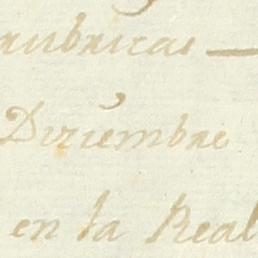 rubricas
Diziembre
en la Real